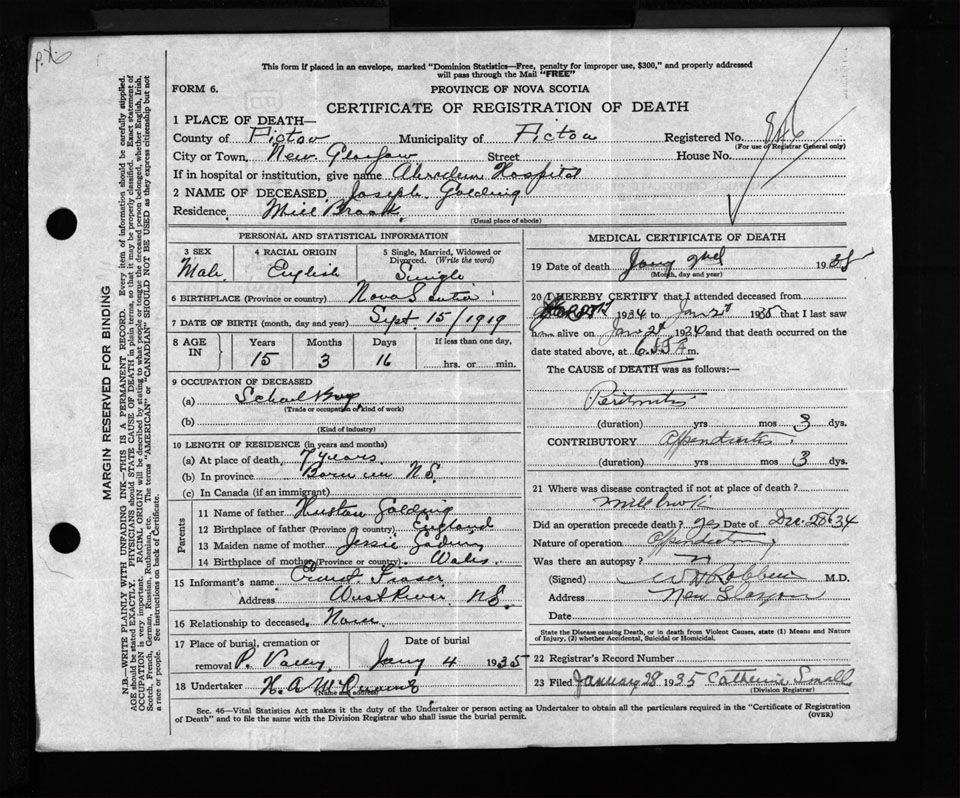 P.X.
This form if placed in an envelope, marked "Dominion Statistics—Free, penalty for improper use, $300," and properly addressed
will pass through the Mail "FREE"
FORM 6.
PROVINCE OF NOVA SCOTIA
CERTIFICATE OF REGISTRATION OF DEATH
1 PLACE OF DEATH—
County of Pictou Municipality of Pictou Registered No. 846
(For use of Registrar General only)
City or Town, New Glasgow Street House No.
If in hospital or institution, give name Aberdeen Hospital
2 NAME OF DECEASED, Joseph Golding
Residence, Mill Brook
(Usual place of abode)
PERSONAL AND STATISTICAL INFORMATION
3 SEX
Male
4 RACIAL ORIGIN
English
5 Single, Married, Widowed or
Divorced. (Write the word)
Single
6 BIRTHPLACE (Province or country) Nova Scotia
7 DATE OF BIRTH (month, day and year) Sept. 15/1919
8 AGE IN
Years Months Days If less than one day,
15 3 16 hrs. or min.
9 OCCUPATION OF DECEASED
(a) School Boy
(Trade or occupation or kind of work)
(b)
(Kind of industry)
10 LENGTH OF RESIDENCE (in years and months)
(a) At place of death, 7 years
(b) In province Born in N.S.
(c) In Canada (if an immigrant)
Parents
11 Name of father Golding
12 Birthplace of father (Province or country) England
13 Maiden name of mother Jessie
14 Birthplace of mother (Province or country) Wales
15 Informant's name Fraser
Address West River N.S.
16 Relationship to deceased, None
17 Place of burial, cremation or
removal P. Valley
Date of burial
Jany 4 1935
18 Undertaker H. A.
(Name and address)
MEDICAL CERTIFICATE OF DEATH
19 Date of death Jany 2nd 1935
(Month, day and year)
20 I HEREBY CERTIFY that I attended deceased from
1934 to Jan 2nd 1935 that I last saw
him alive on Jan 2nd 1930 and that death occurred on
date stated above, at m.
The CAUSE of DEATH was as follows:—
Peritonitis
(duration) yrs mos 3 dys.
CONTRIBUTORY Appendicitis
(duration) yrs mos 3 dys.
21 Where was disease contracted if not at place of death?
Millbrook
Did an operation precede death? yes Date of Dec. 34
Nature of operation
Was there an autopsy?
(Signed) M.D.
Address New Glasgow
Date
State the Disease causing Death, or in death from Violent Causes, state (1) Means and Nature
of Injury, (2) whether Accidental, Suicidal or Homicidal.
22 Registrar's Record Number
23 Filed January 28 1935 Catherine Small
(Division Registrar)
Sec. 46—Vital Statistics Act makes it the duty of the Undertaker or person acting as Undertaker to obtain all the particulars required in the "Certificate of Registration
of Death" and to file the same with the Division Registrar who shall issue the burial permit.
(OVER)
MARGIN RESERVED FOR BINDING
N.B.—WRITE PLAINLY WITH UNFADING INK—THIS IS A PERMANENT RECORD. Every item of information should be carefully supplied.
AGE should be stated EXACTLY. PHYSICIANS should STATE CAUSE OF DEATH in plain terms, so that it may be properly classified. Exact statement of
OCCUPATION is very important. RACIAL ORIGIN will be described by stating to what people or tongue the deceased person belonged, whether English, Irish,
Scotch, French, German, Russian, Ruthenian, etc. The terms "AMERICAN" or "CANADIAN" SHOULD NOT BE USED as they express citizenship but not
a race or people. See instructions on back of Certificate.